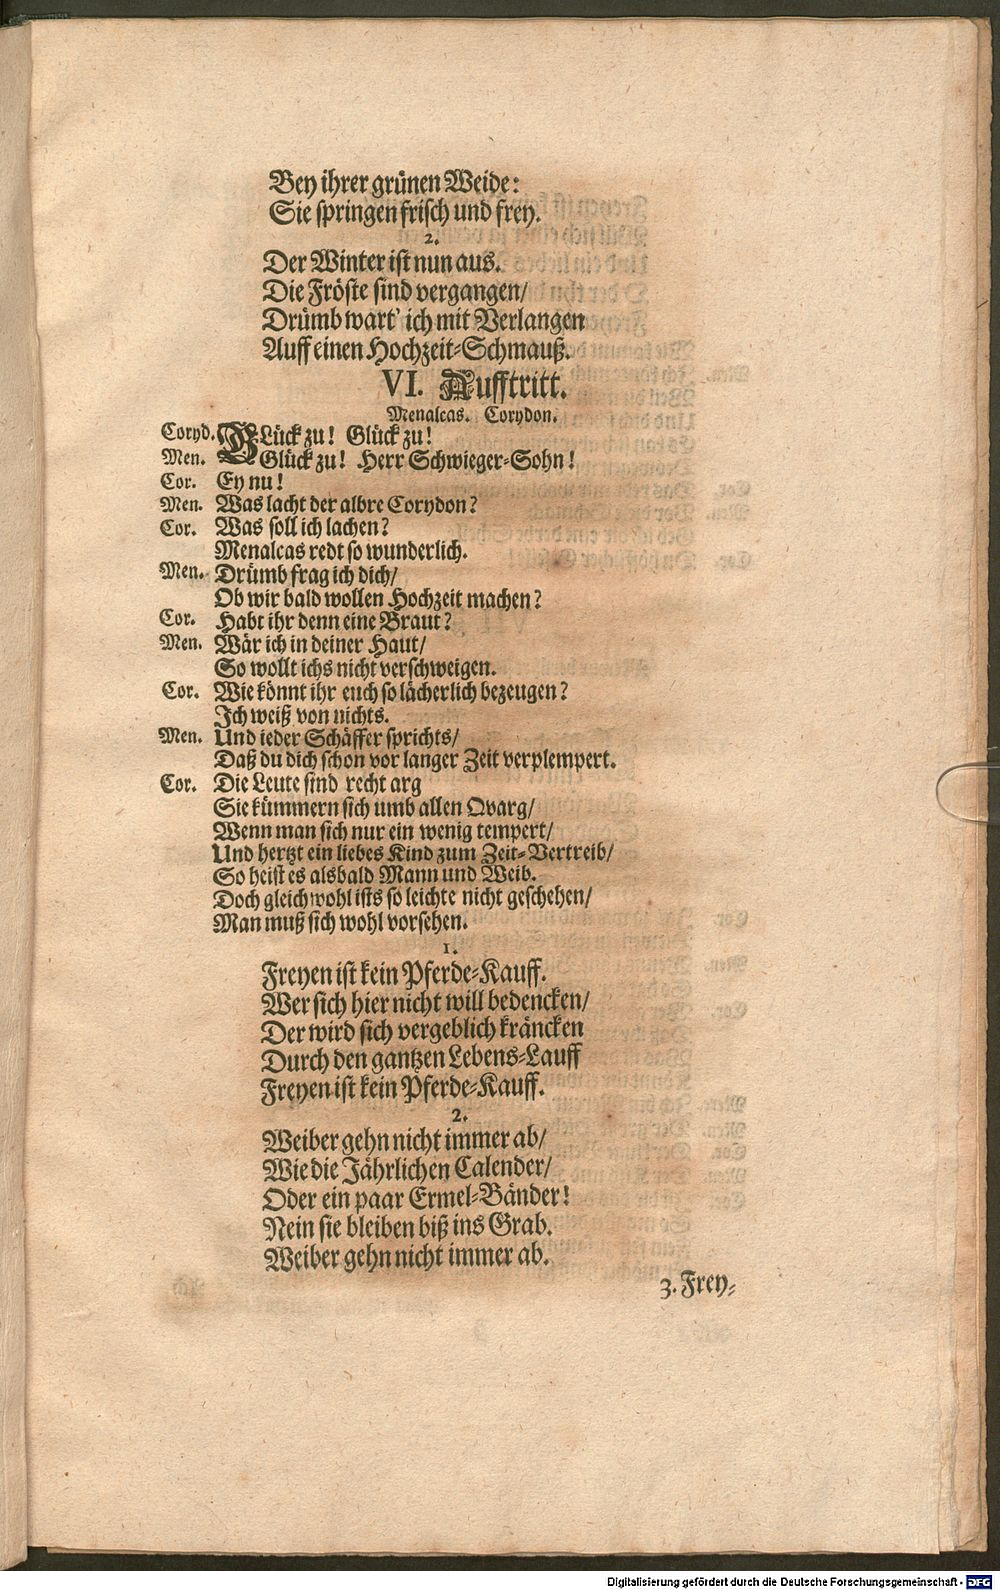 Bey ihrer grünen Weide:
Sie springen frisch und frey.
2.
Der Winter ist nun aus.
Die Fröste sind vergangen/
Drümb wart' ich mit Verlangen
Auff einen Hochzeit-Schmauß.
VI. Aufftritt.
Menalcas. Corydon.
Coryd. GLück zu! Glück zu!
Men. Glück zu! Herr Schwieger-Sohn!
Cor. Ey nu!
Men. Was lacht der albre Corydon?
Cor. Was soll ich lachen?
Menalcas redt so wunderlich.
Men. Drümb frag ich dich/
Ob wir bald wollen Hochzeit machen?
Cor. Habt ihr denn eine Braut?
Men. Wär ich in deiner Haut/
So wollt ichs nicht verschweigen.
Cor. Wie könnt ihr euch so lächerlich bezeugen?
Ich weiß von nichts.
Men. Und ieder Schäffer sprichts/
Daß du dich schon vor langer Zeit verplempert.
Cor. Die Leute sind recht arg
Sie kümmern sich umb allen Qvarg/
Wenn man sich nur ein wenig tempert/
Und hertzt ein liebes Kind zum Zeit-Vertreib/
So heist es alsbald Mann und Weib.
Doch gleichwohl ists so leichte nicht geschehen/
Man muß sich wohl vorsehen.
1.
Freyen ist kein Pferde-Kauff.
Wer sich hier nicht will bedencken/
Der wird sich vergeblich kräncken
Durch den gantzen Lebens-Lauff
Freyen ist kein Pferde-Kauff.
2.
Weiber gehn nicht immer ab/
Wie die Jährlichen Calender/
Oder ein paar Ermel-Bänder!
Nein sie bleiben biß ins Grab.
Weiber gehn nicht immer ab.
3. Frey-
Digitalisierung gefördert durch die Deutsche Forschungsgemeinschaft - DFG